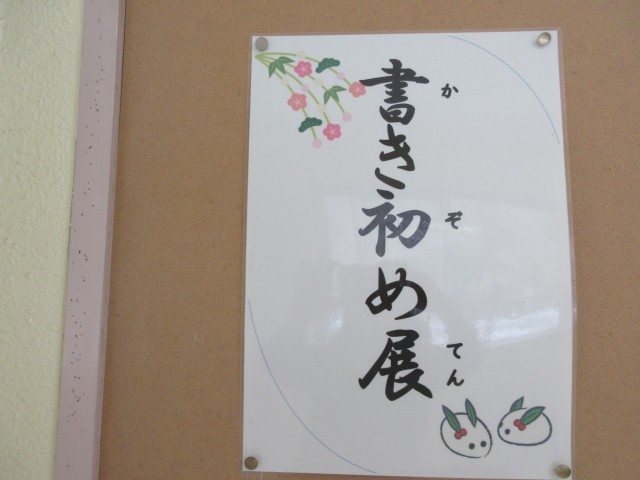 書き初め展
か
ぞ
てん